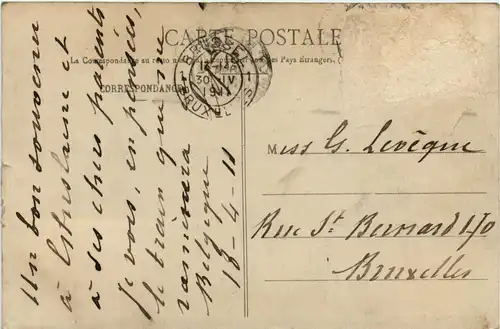 CARTE POSTALE
La Correspondance au recto n'est pas des Pays Étrangers, (
CORRESPONDANCE
BRUSSEL 1
30 IV
1911
BRUXELLES 1
Un bon souvenir
à et
à ses chers parents
Je vois, en pensées,
le train qui me
ramènera
Belgique
18-4-11
Miss G. Levêque
Rue St Bernard 170
Bruxelles